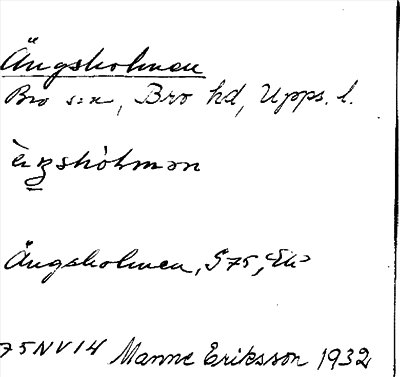 Ängsholmen
Bro s:n, Bro hd, Upps. l.
Ängsholmen, S75,
75NV14 Manne Eriksson 1932